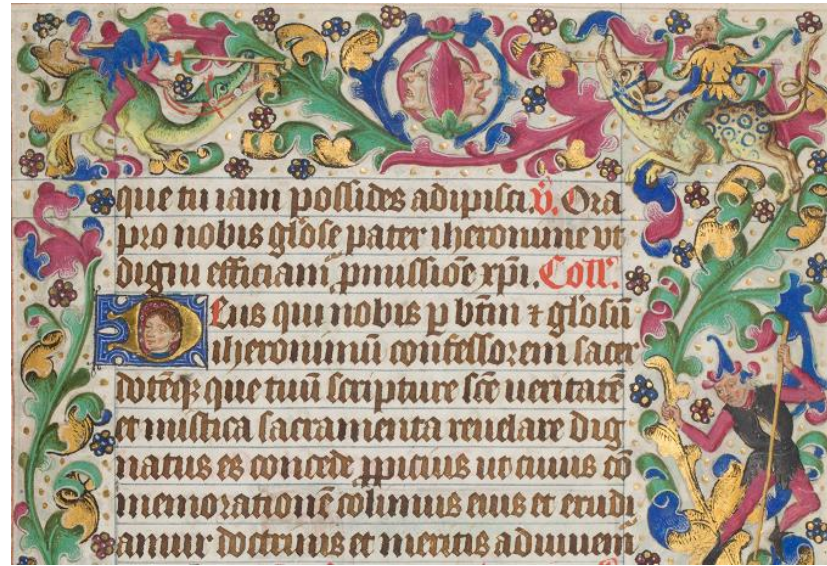 que tu iam possides adipisci. V̄. Ora
pro nobis gl̄ose pater iheronime vt
digni efficiam̄ p̄missiōe xp̄i. Coll'.
Deus qui nobis p bt̄m ⁊ gl̄osū
iheronimū confessorem sacer
dotēq̄ que tuū scripture sc̄e ueritatē
et mistica sacramenta reuelare dig
natus es concede p̄piciuis ut cuius cō
memorationē colimus eius et erudi
amur doctrinis et meritis adiuuem̄